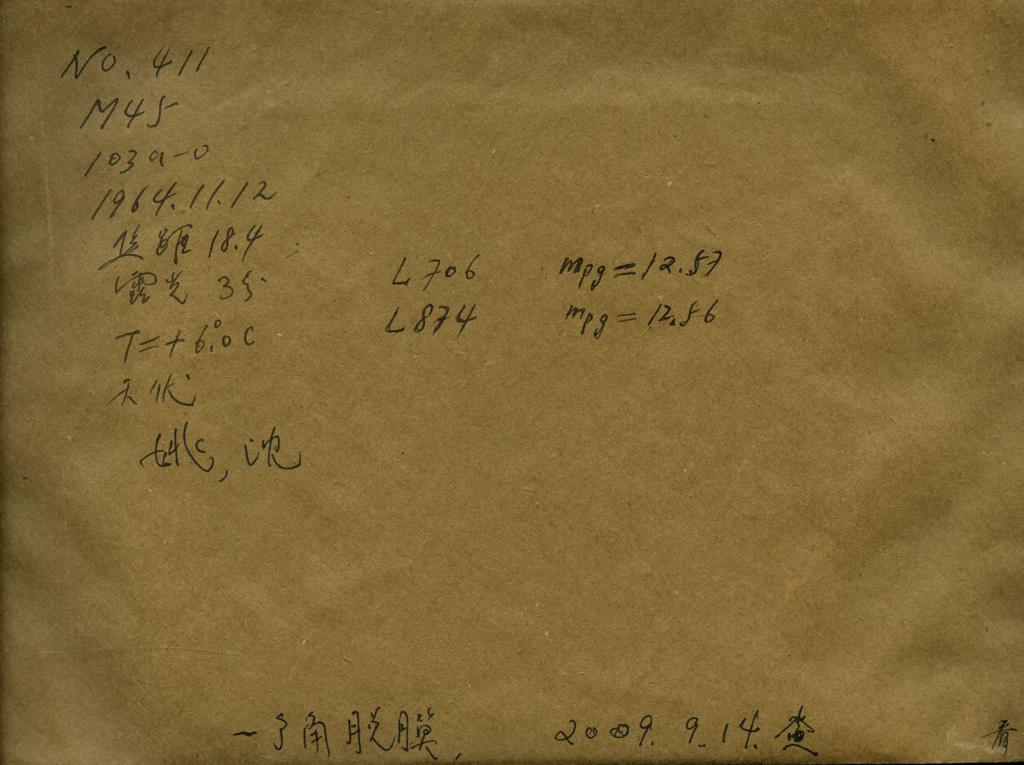 NO. 411
M45
103a-O
1964.11.12
焦距 18.4
露光 3分
T=+6.0°C
天优
姚, 沈
L706 mpg=12.57
L874 mpg=12.56
一个角脱膜, 2009. 9. 14. 查
看